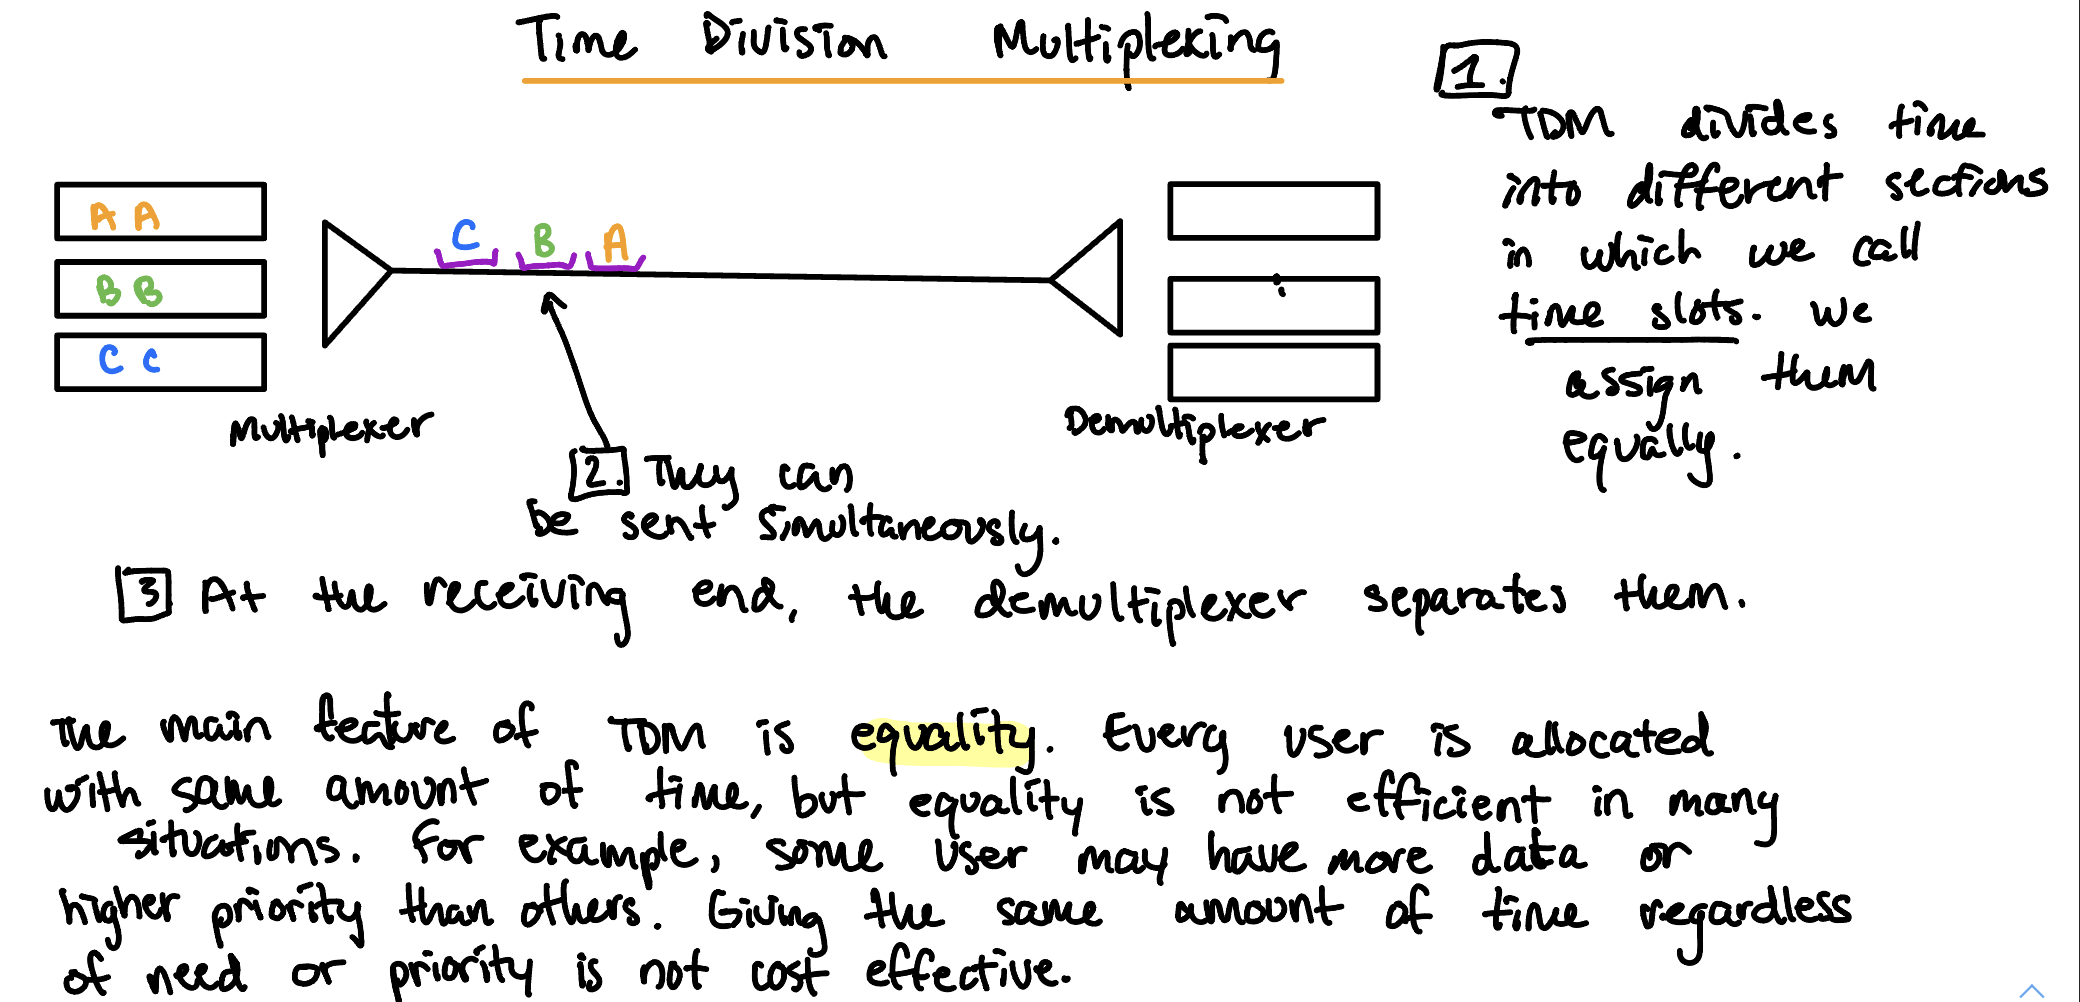 Time Division Multiplexing
1.
TDM divides time
into different sections
in which we call
time slots. We
assign them
equally.
A A
B B
C C
C B A
Multiplexer
Demultiplexer
2. They can
be sent simultaneously.
3 At the receiving end, the demultiplexer separates them.
The main feature of TDM is equality. Every user is allocated
with same amount of time, but equality is not efficient in many
situations. For example, some user may have more data or
higher priority than others. Giving the same amount of time regardless
of need or priority is not cost effective.